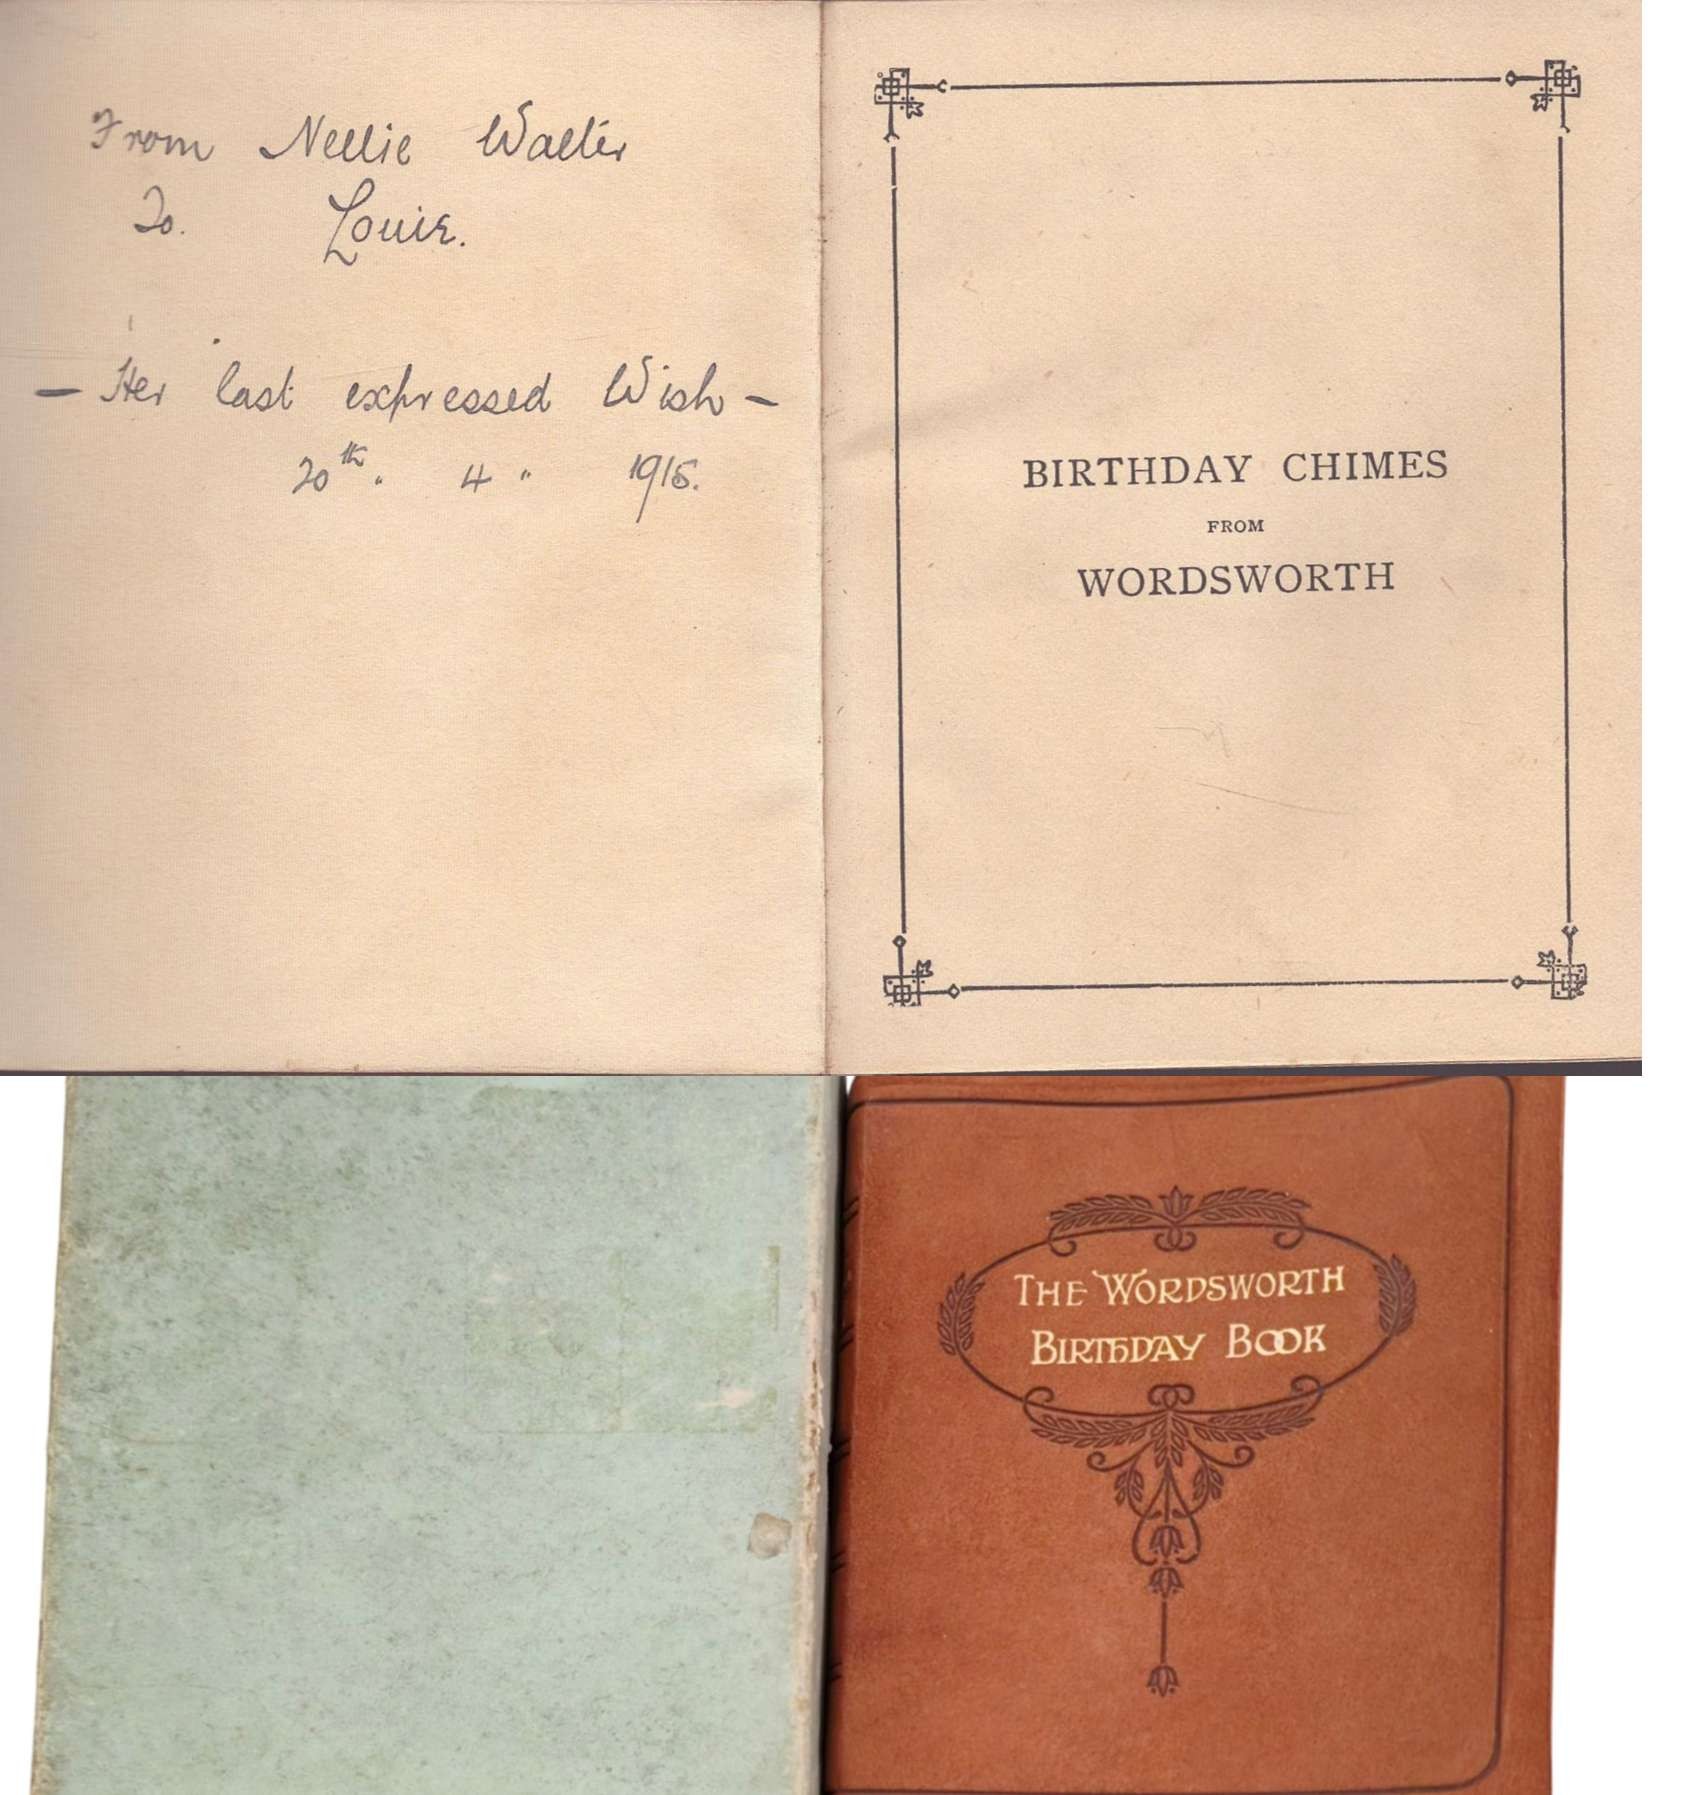 From Nellie Walter
To. Louie.
- Her last expressed Wish -
20th. " 4 " 1915.
BIRTHDAY CHIMES
FROM
WORDSWORTH
THE WORDSWORTH
BIRTHDAY BOOK